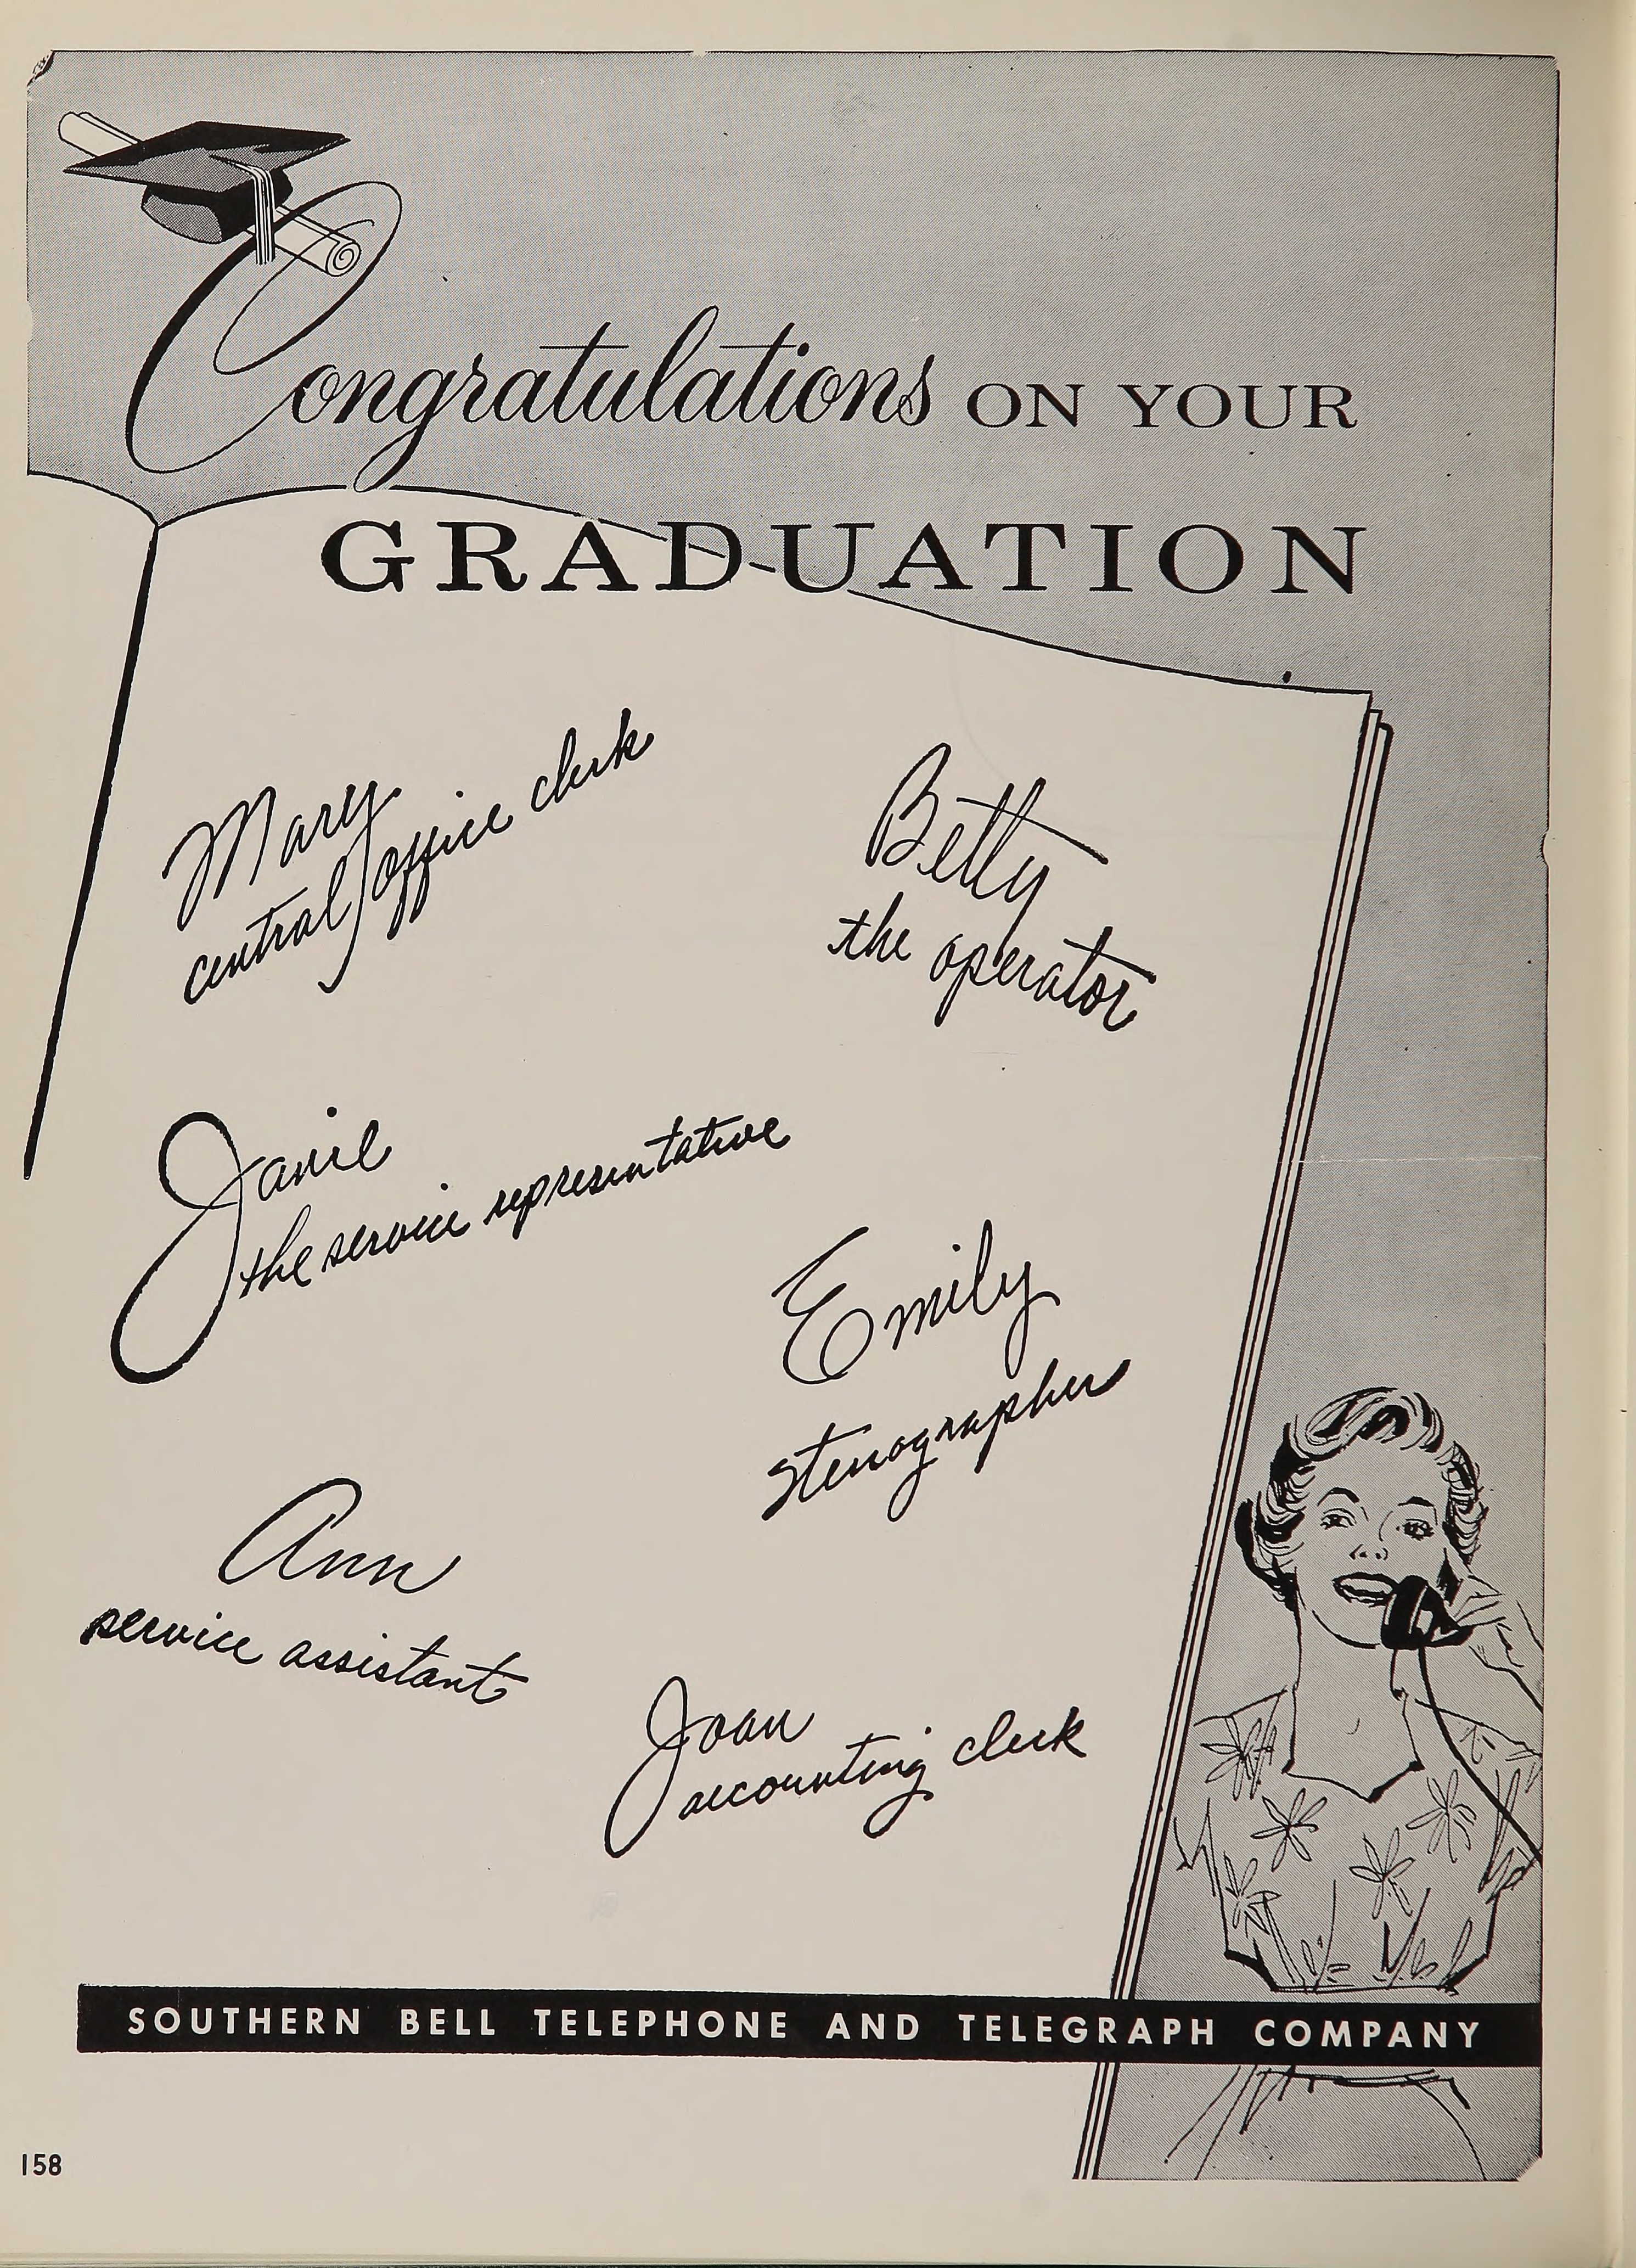 Congratulations ON YOUR
GRADUATION
Mary
central office clerk
Betty
the operator
Janie
the service representative
Emily
stenographer
Ann
service assistant
Joan
accounting clerk
SOUTHERN BELL TELEPHONE AND TELEGRAPH COMPANY
158